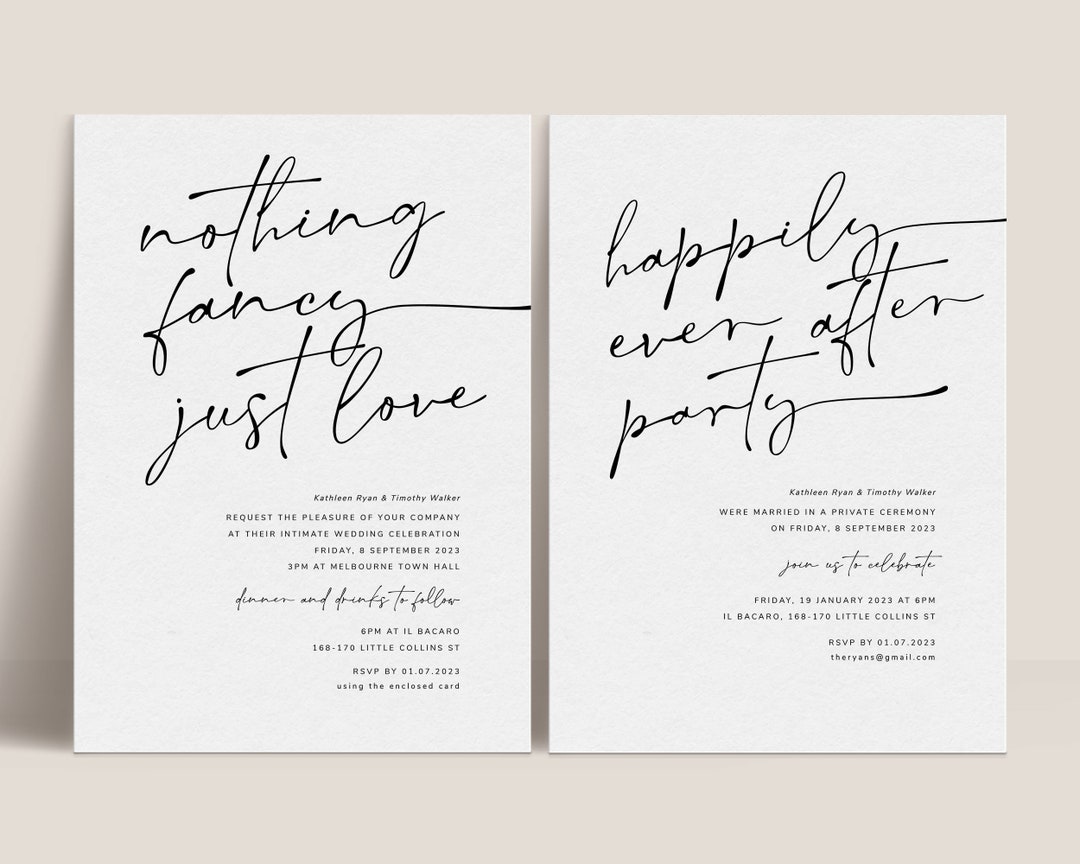 nothing
fancy
just love
Kathleen Ryan & Timothy Walker
REQUEST THE PLEASURE OF YOUR COMPANY
AT THEIR INTIMATE WEDDING CELEBRATION
FRIDAY, 8 SEPTEMBER 2023
3PM AT MELBOURNE TOWN HALL
dinner and drinks to follow
6PM AT IL BACARO
168-170 LITTLE COLLINS ST
RSVP BY 01.07.2023
using the enclosed card
happily
ever after
party
Kathleen Ryan & Timothy Walker
WERE MARRIED IN A PRIVATE CEREMONY
ON FRIDAY, 8 SEPTEMBER 2023
join us to celebrate
FRIDAY, 19 JANUARY 2023 AT 6PM
IL BACARO, 168-170 LITTLE COLLINS ST
RSVP BY 01.07.2023
theryans@gmail.com